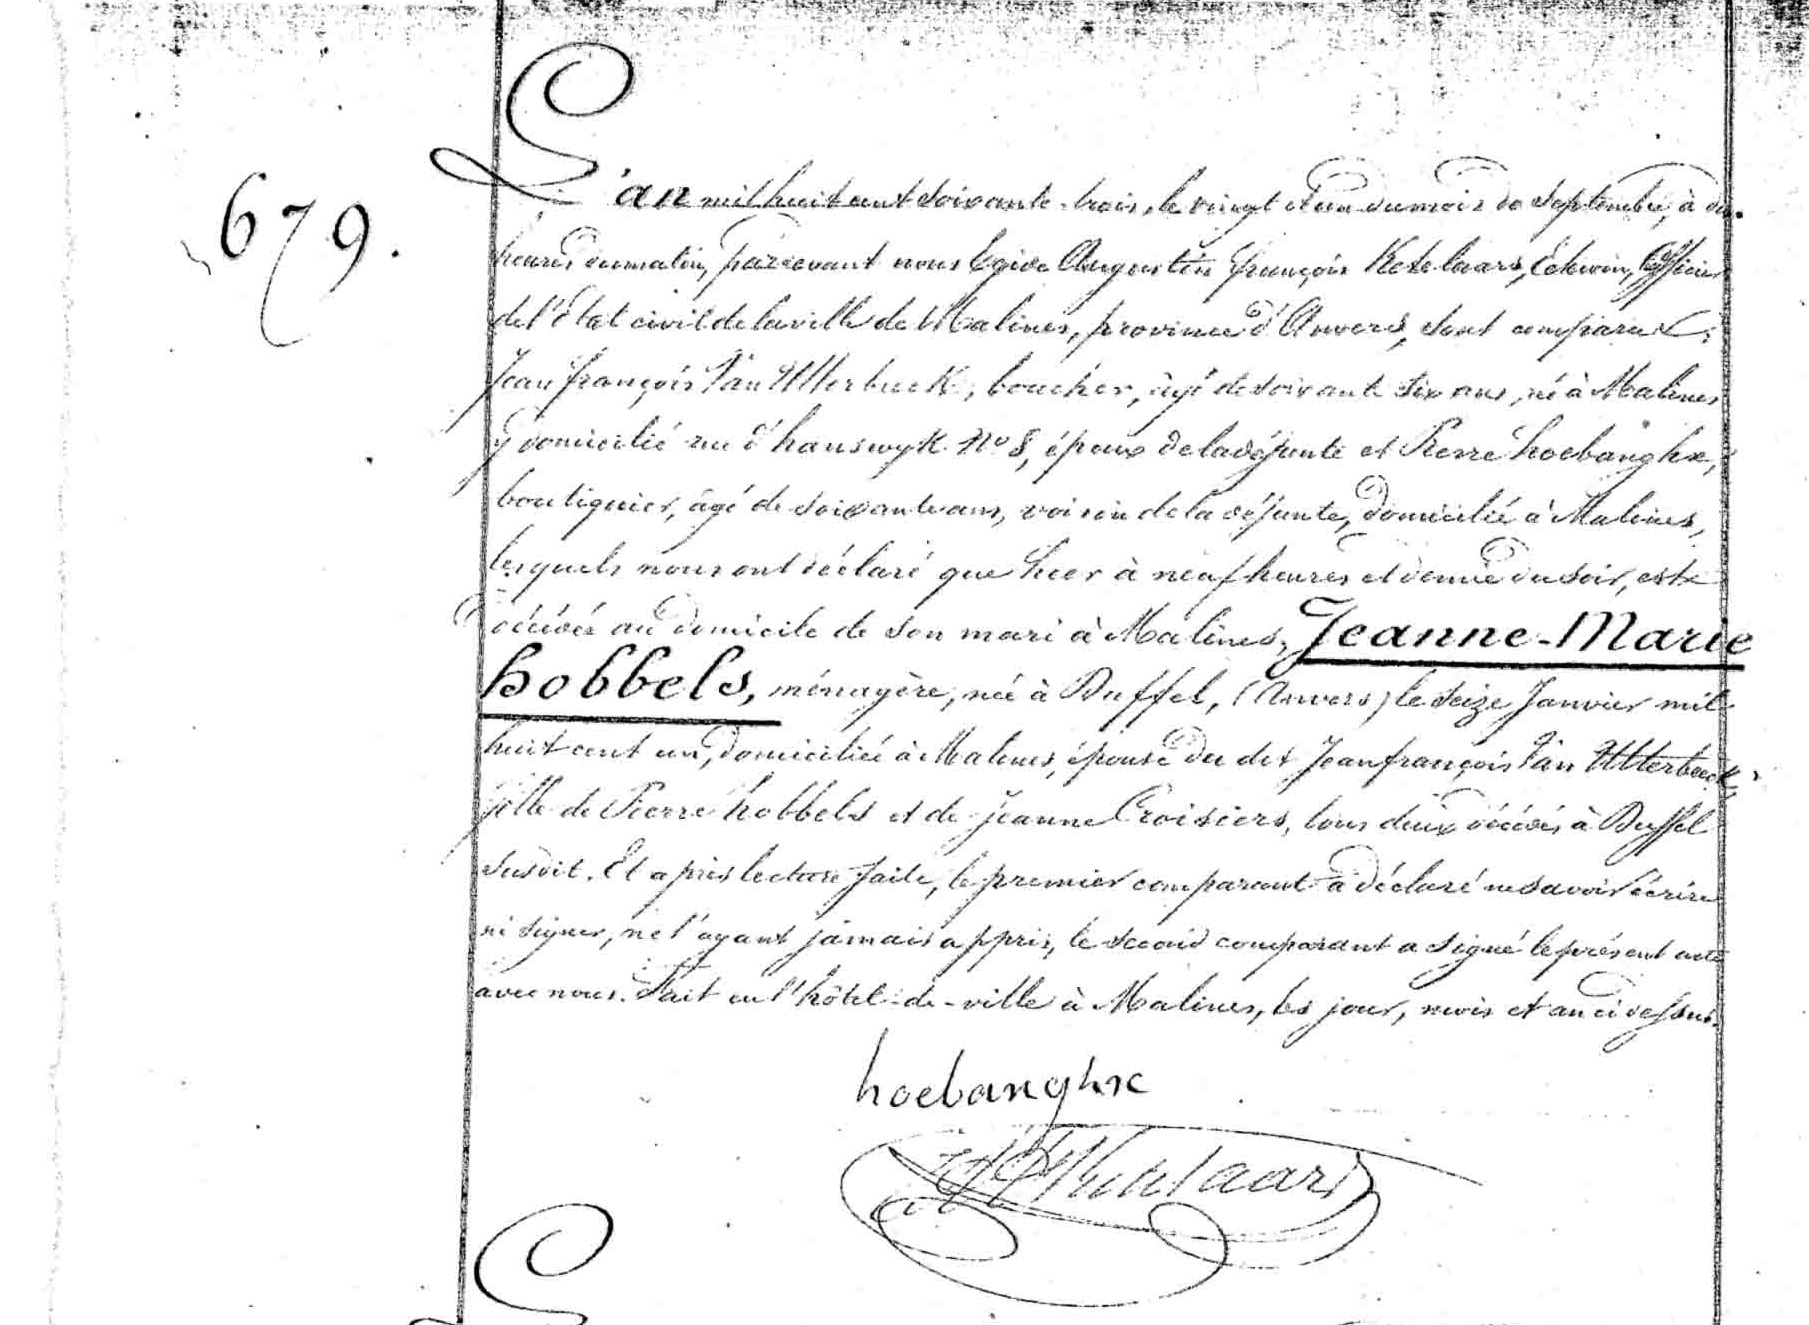 679.
L'an mil huit cent soixante-trois, le vingt et un du mois de Septembre, à dix
heures du matin, pardevant nous Egide Augustin François Ketelaars, Echevin, Officier
de l'État civil de la ville de Malines, province d'Anvers, sont comparus:
Jean François Van Utterbeeck, boucher, âgé de soixante six ans, né à Malines
y domicilié rue d'hanswyk No 8, époux de la défunte et Pierre hoebanghx,
boutiquier, âgé de soixante ans, voisin de la défunte, domicilié à Malines,
lesquels nous ont déclaré que hier à neuf heures et demie du soir, est
décédée au domicile de son mari à Malines, Jeanne-Marie
hobbels, ménagère, née à Duffel, (Anvers) le seize Janvier mil
huit cent un, domiciliée à Malines, épouse du dit Jean françois Van Utterbeeck,
fille de Pierre hobbels et de Jeanne Croisiers, tous deux décédés à Duffel
susdit. Et après lecture faite, le premier comparant a déclaré ne savoir écrire
ni signer, ne l'ayant jamais appris, le second comparant a signé le présent acte
avec nous. Fait en l'hôtel-de-ville à Malines, les jour, mois et an ci dessus.
hoebanghx
Ketelaars